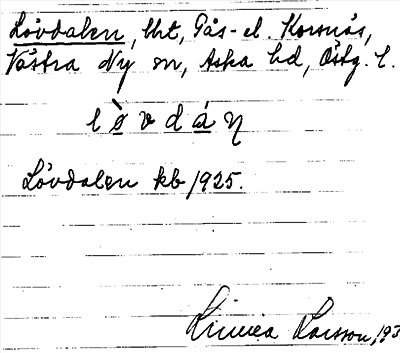 Lövdalen, lht, Gås- el. Korsnäs,
Västra Ny sn, Aska hd, Östg. l.
Lövdalen kb 1925.
Linnea Larsson, 193